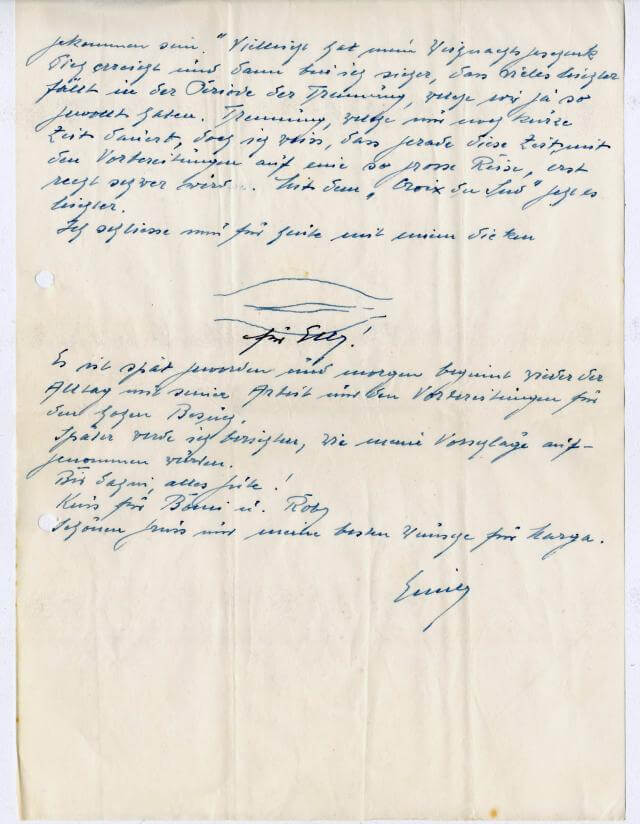 gekommen sein." Vielleicht hat mein Weihnachtsgeschenk
Dich erreicht und dann bin ich sicher, dass Vieles leichter
fällt in der Periode der Trennung, welche wir ja so
gewollt haben. Trennung, welche nur noch kurze
Zeit dauert, doch ich weiss, dass gerade diese Zeit, mit
den Vorbereitungen auf eine so grosse Reise, erst
recht schwer wird. Mit dem "Croix du Sud" geht es
leichter.
Ich schliesse nun für heute mit einem dicken
für Elly!
Es ist spät geworden und morgen beginnt wieder der
Alltag mit seiner Arbeit und den Vorbereitungen für
den hohen Besuch.
Später werde ich berichten, wie meine Vorschläge auf-
genommen wurden.
Bis alles Gute!
Kuss für u. Roby
Schönen Gruss und meine besten Wünsche für